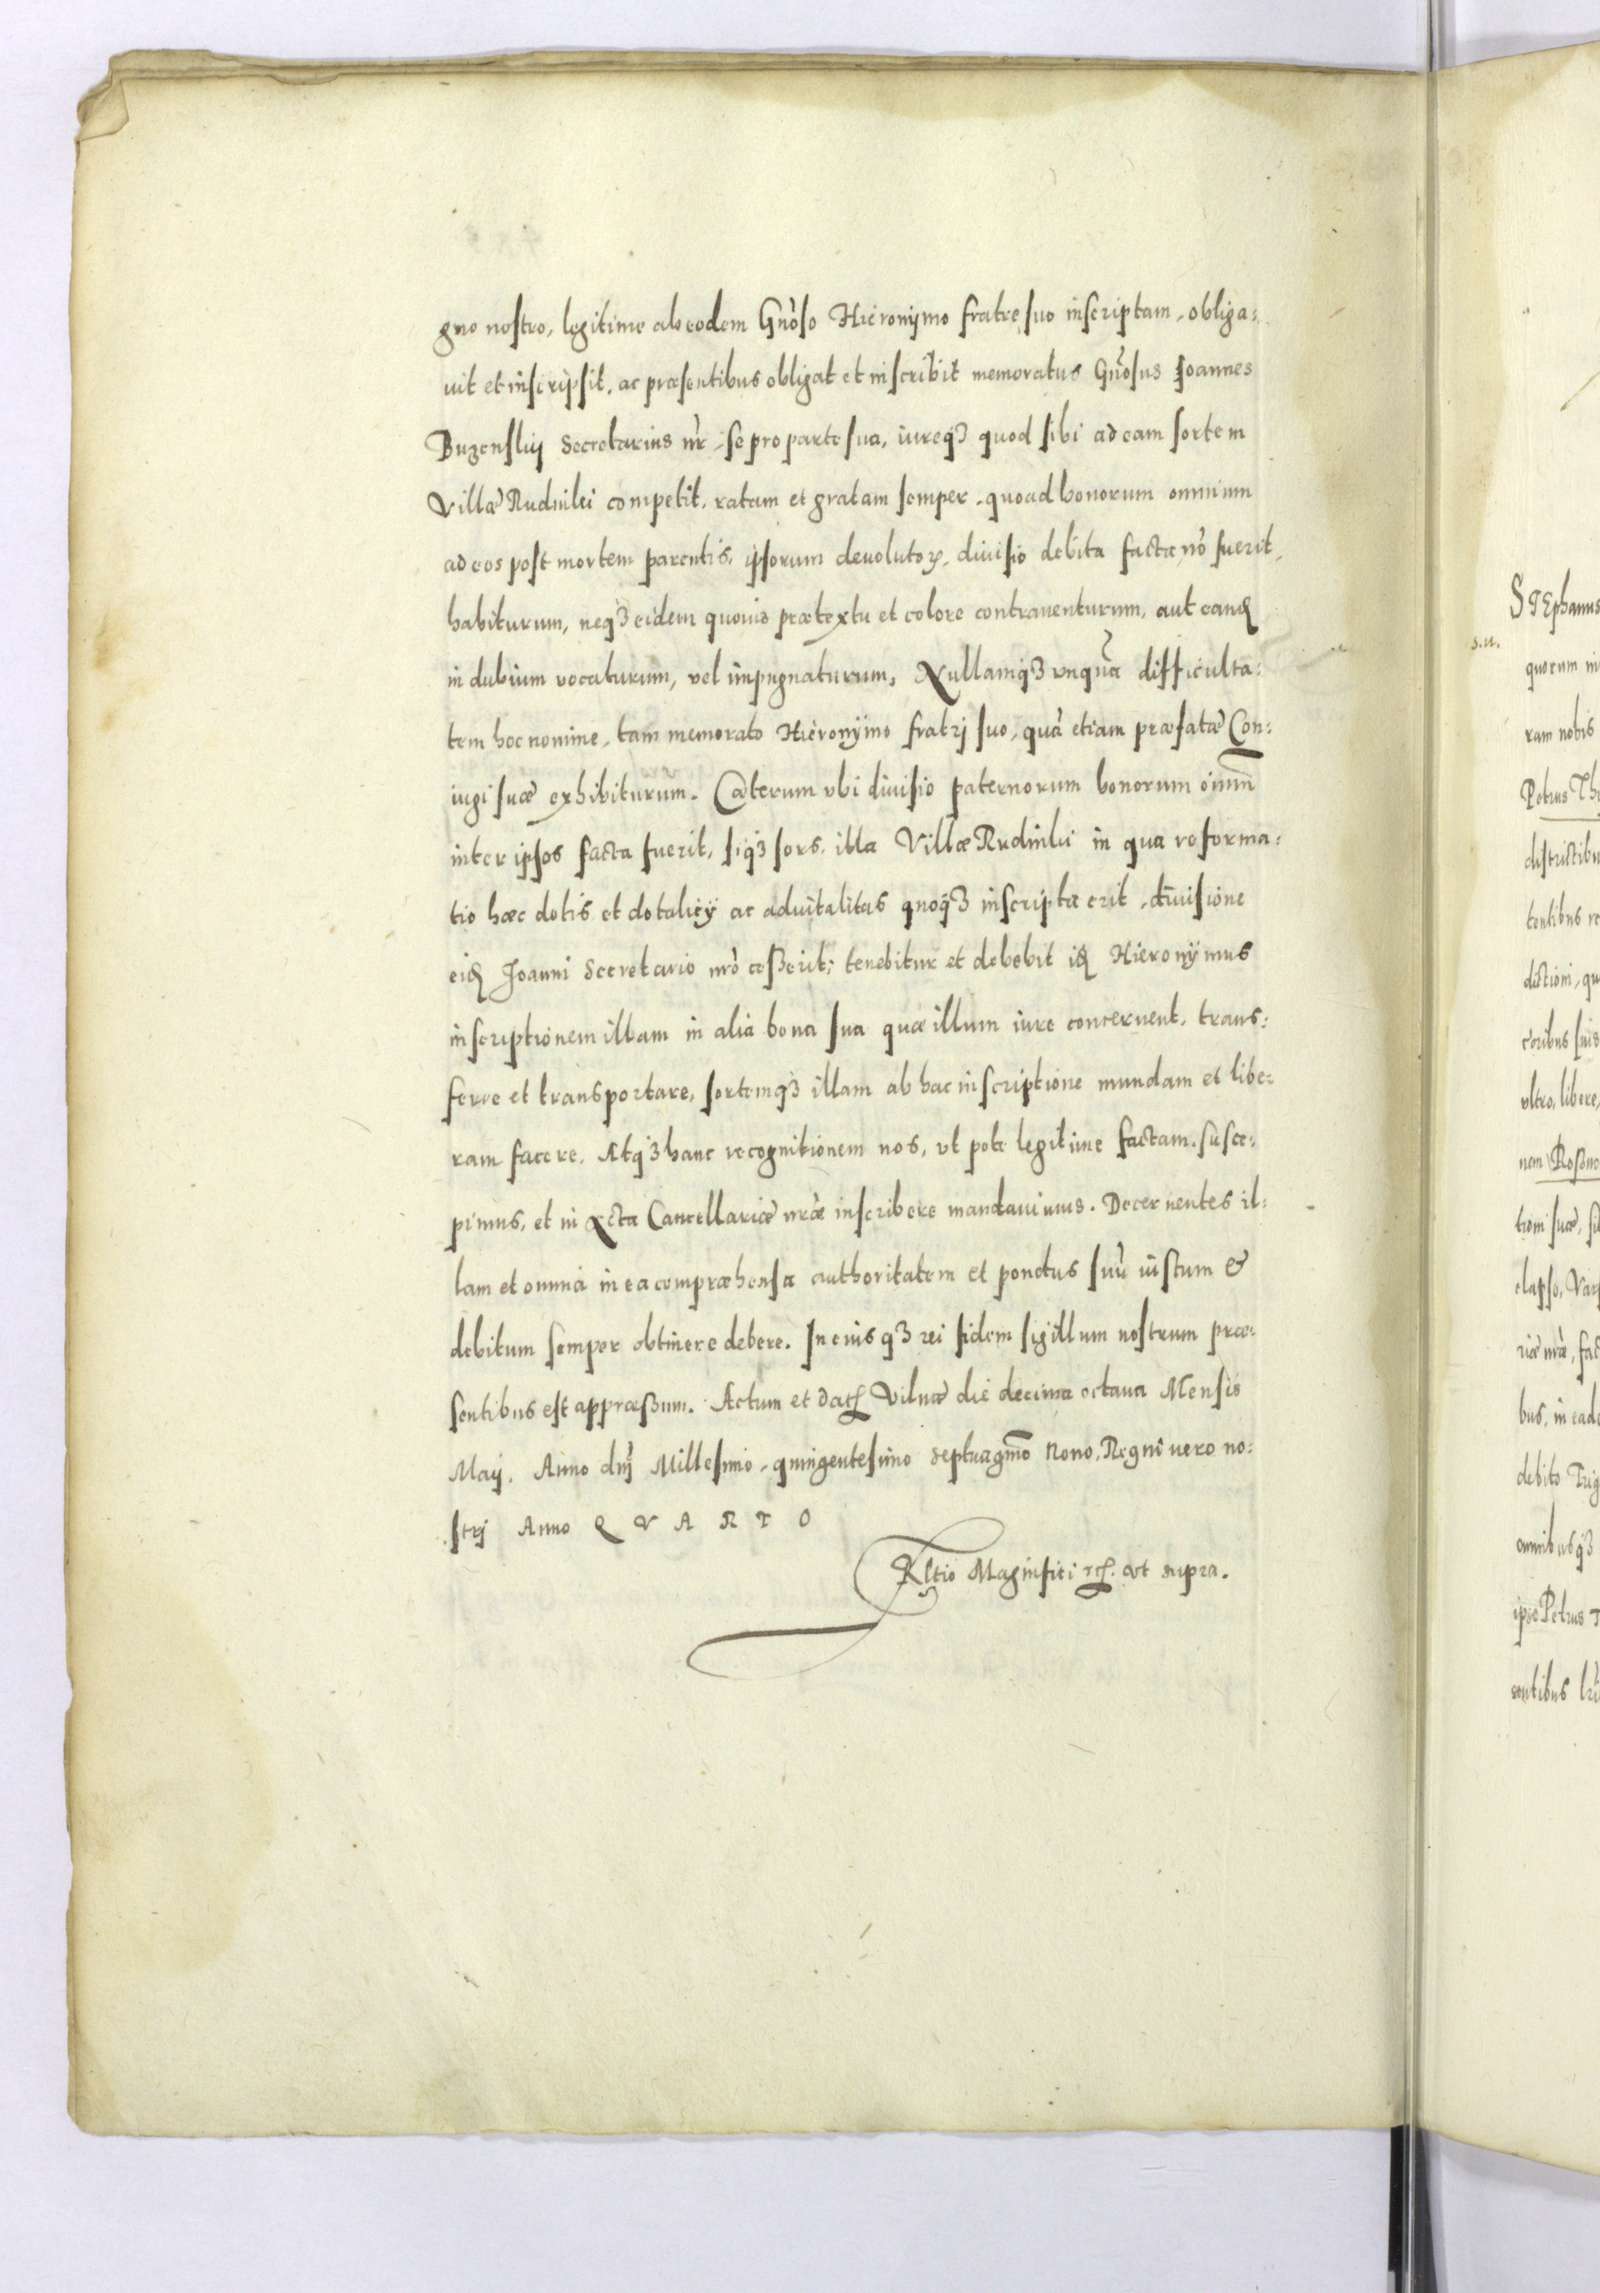 gno nostro, legitime ab eodem Gnoso Hieronymo fratre suo inscriptam, obliga:
uit et inscripsit, ac præsentibus obligat et inscribit memoratus Gnosus Joannes
Buzenskij Secretarius nr, se pro parte sua, iureqȝ quod sibi ad eam sortem
Villæ Rudniki competit, ratam et gratam semper, quoad bonorum omnium
ad eos post mortem parentis, ipsorum deuolutoꝝ, diuisio debita facta nō fuerit,
habiturum, neqȝ eidem quouis prætextu et colore contrauenturum, aut eanđ
in dubium vocaturum, vel impugnaturum, Nullamqȝ vnquā difficulta:
tem hoc nomine, tam memorato Hieronymo fratrj suo, quā etiam præfatæ Con:
iugi suæ exhibiturum. Cæterum vbi diuisio paternorum bonorum oīum
inter ipsos facta fuerit, siqȝ sors illa Villæ Rudniki in qua reforma:
tio hæc dotis et dotalicÿ ac aduitalitas quoqȝ inscripta erit, diuisione
eiđ Joanni Secretario nrō ceßerit, tenebitur et debebit iđ Hieronymus
inscriptionem illam in alia bona sua quæ illum iure concernent, trans:
ferre et transportare, sortemqȝ illam ab hac inscriptione mundam et libe:
ram facere. Atqȝ hanc recognitionem nos, vt pote legitime factam, susce:
pimus, et in Acta Cancellariæ nræ inscribere mandauimus. Decernentes il:
lam et omnia in ea compræhensa authoritatem et pondus suū iustum &
debitum semper obtinere debere. In cuiusqȝ rei fidem sigillum nostrum præ:
sentibus est appræßum. Actum et dat Vilnæ die decima octaua Mensis
Maij. Anno dnj Millesimo, quingentesimo septuagmo Nono, Regni uero no:
strj Anno Q V A R T O
Rltio Magnifici etc. vt supra.
STEphanus
s.u.
quorum
ram nobis
Petrus
tentibus
dictioni,
ultro, libere,
elapso,
bus, in
debito
omnibusqȝ
ipse Petrus